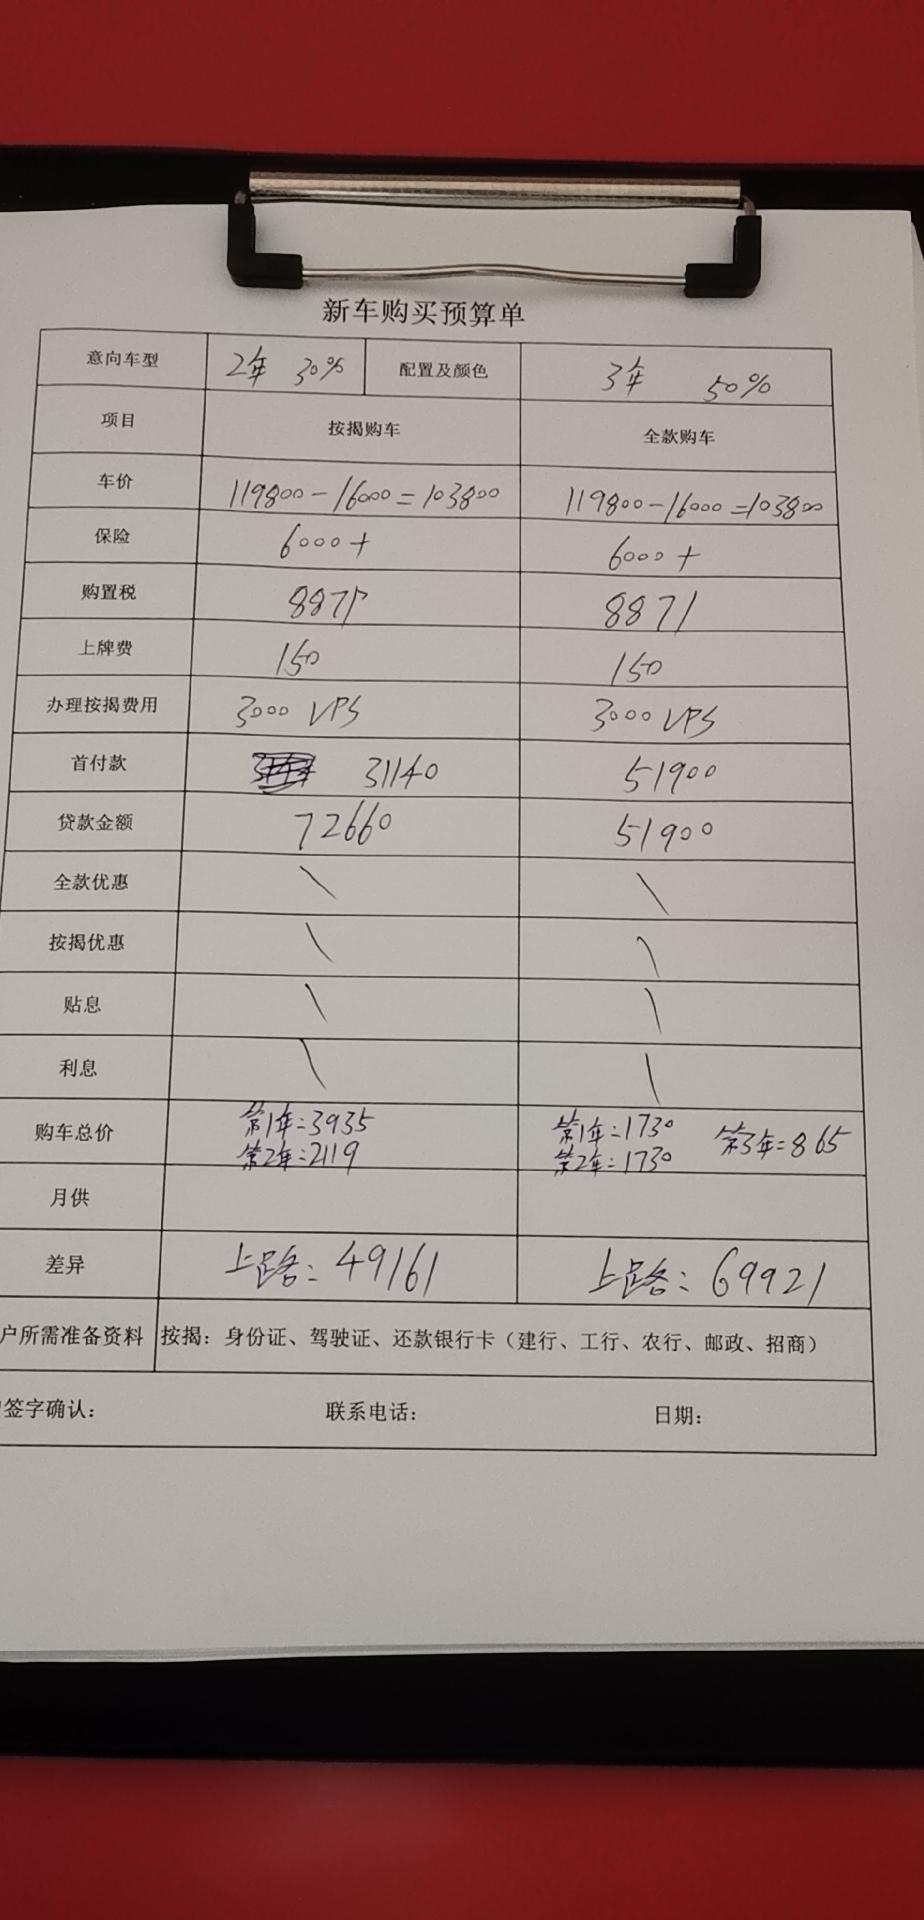 新车购买预算单
意向车型 2年 30% 配置及颜色 3年 50%
项目 按揭购车 全款购车
车价 119800-16000=103800 119800-16000=103800
保险 6000+ 6000+
购置税 8871 8871
上牌费 150 150
办理按揭费用 3000 VPS 3000 VPS
首付款 31140 51900
贷款金额 72660 51900
全款优惠 \ \
按揭优惠 \ \
贴息 \ \
利息 \ \
购车总价 第1年:3935 第1年:1730 第3年=865
第2年:2119 第2年:1730
月供
差异 上路:49161 上路:69921
户所需准备资料 按揭：身份证、驾驶证、还款银行卡（建行、工行、农行、邮政、招商）
签字确认： 联系电话： 日期：